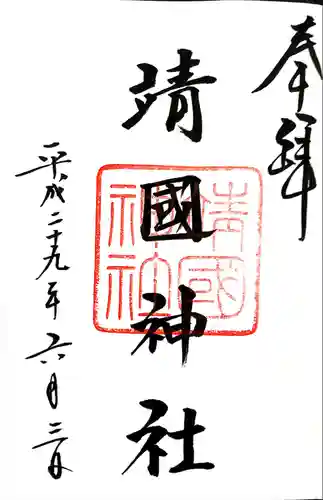 奉拜
靖國神社
靖國
神社
平成二十九年六月三日